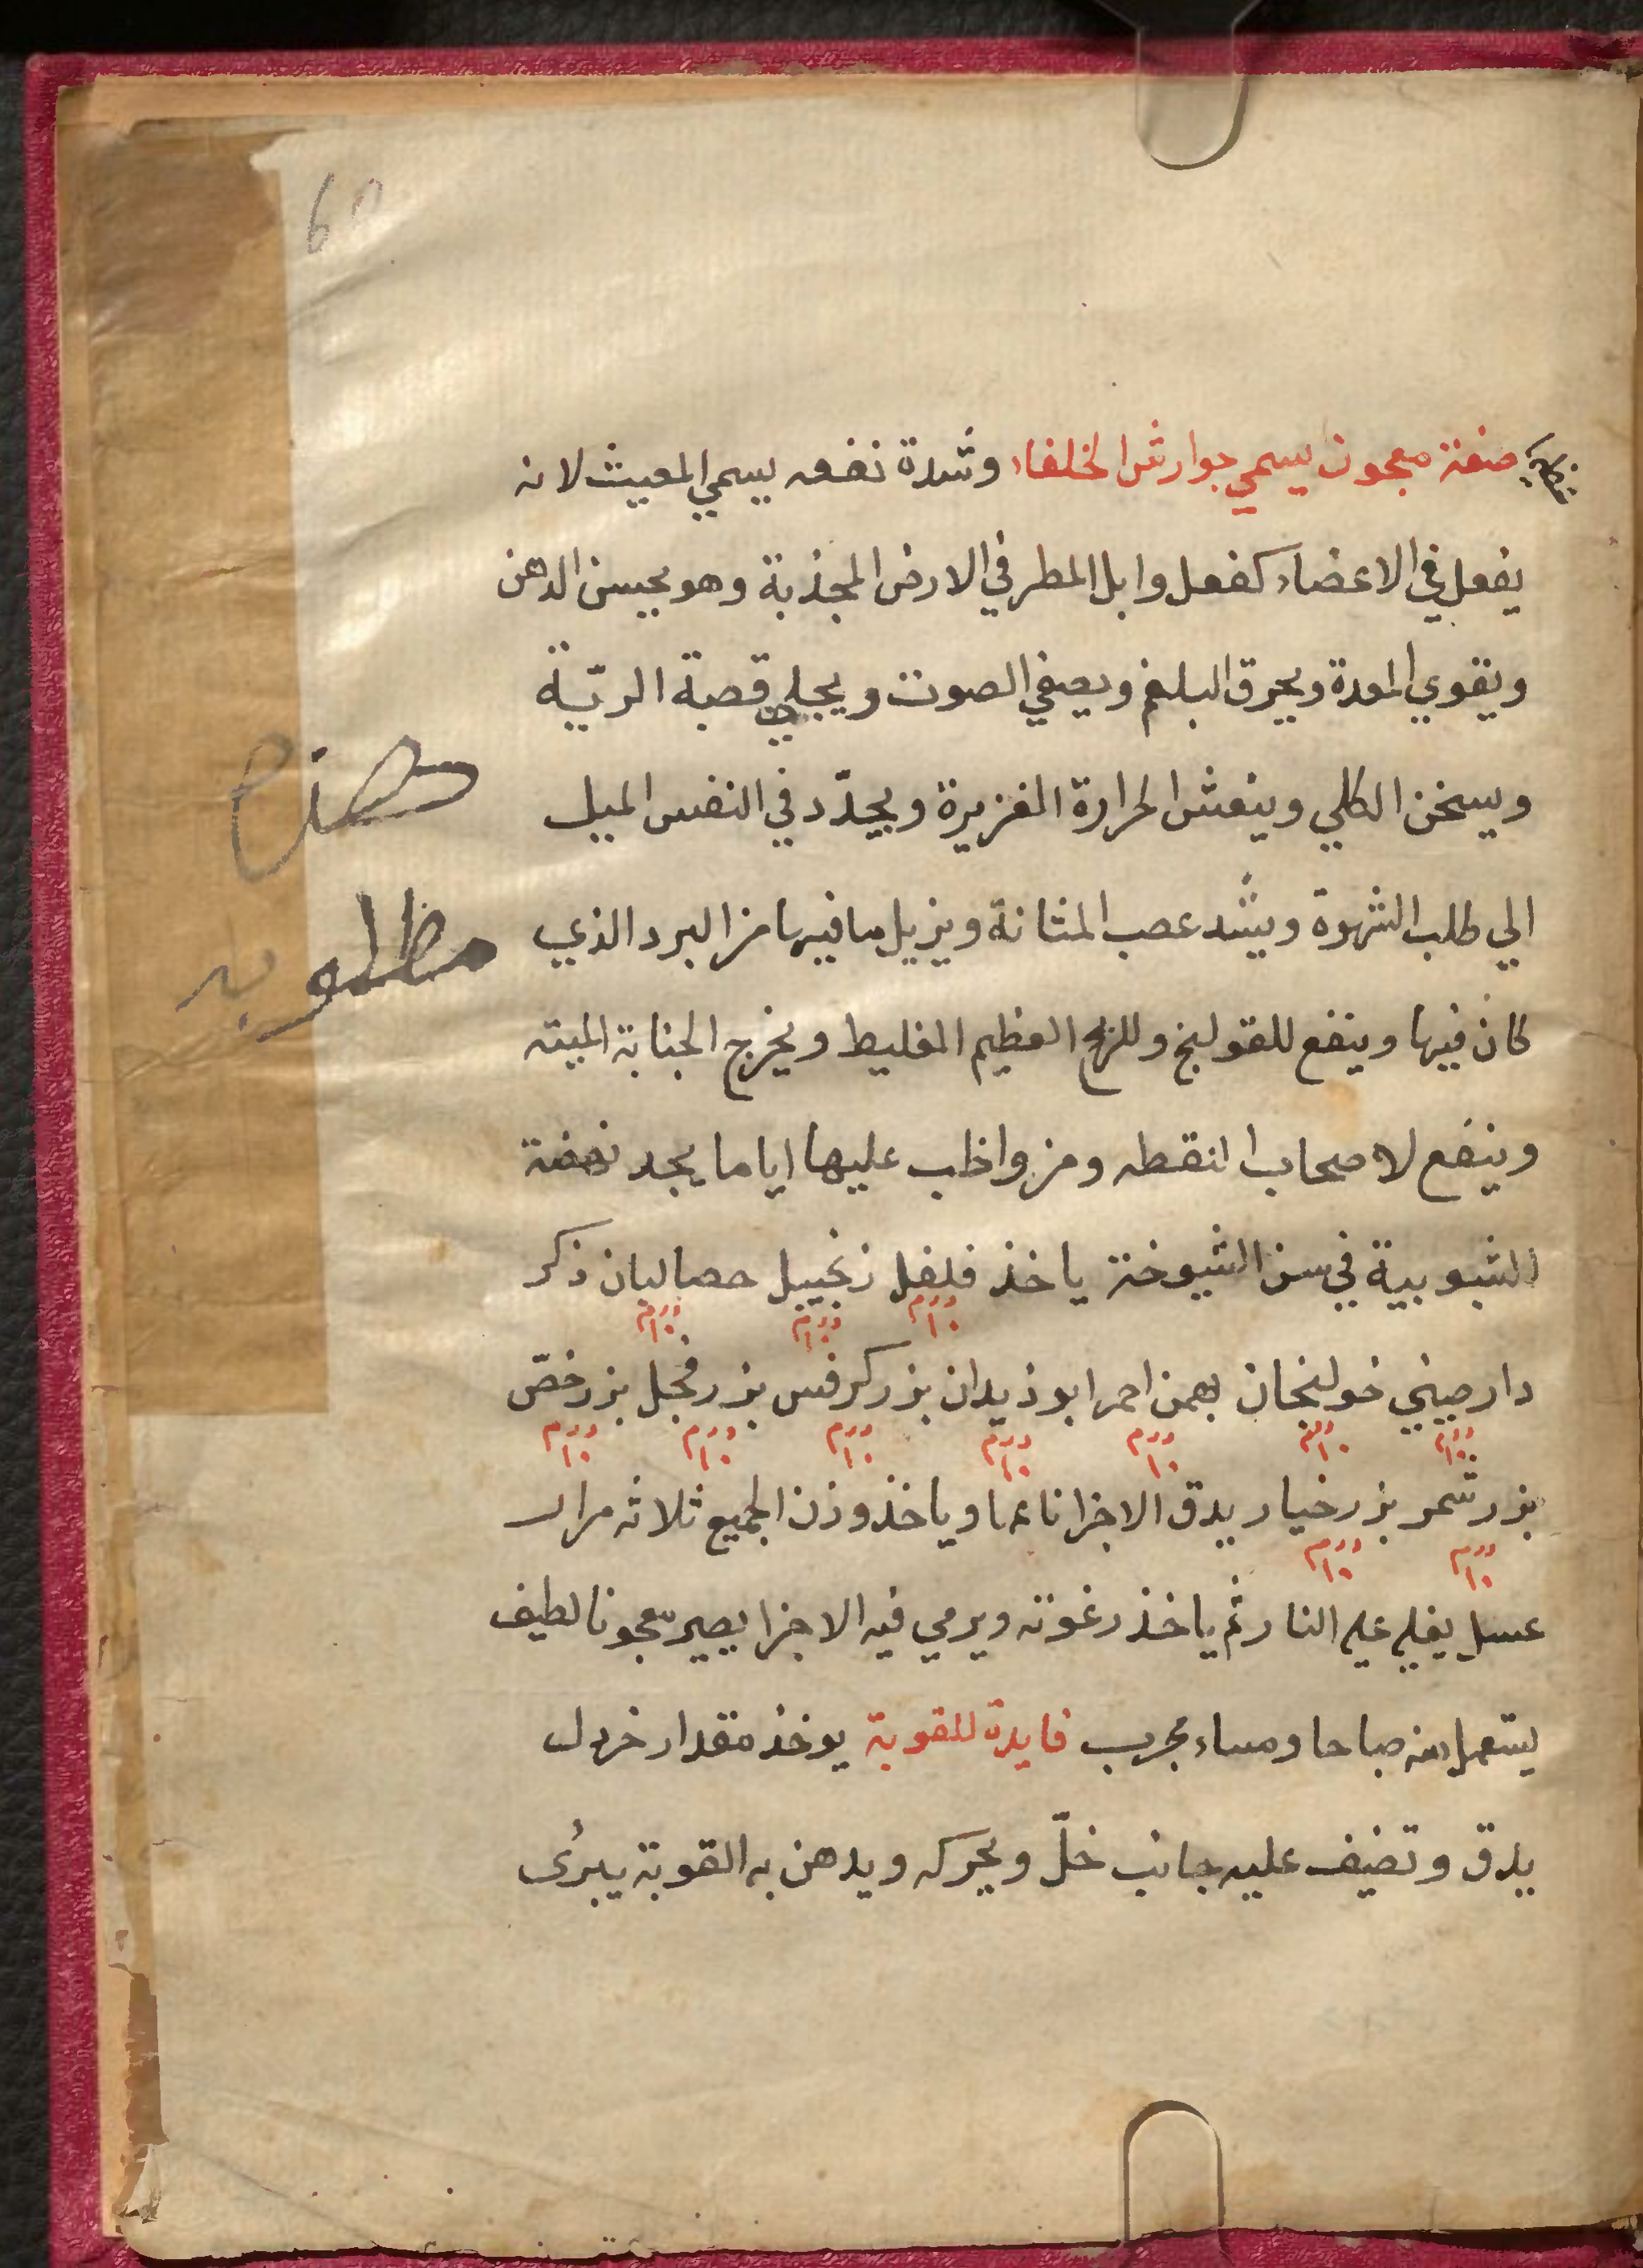 60
صفة معجون يسمي جوارش الخلفاء وشدة نفعه يسمي المغيث لانه
يفعل في الاعضاء كفعل وابل المطر في الارض المجذبة وهو يحسن الدهن
ويقوي المعدة ويحرق البلغم ويصفي الصوت ويجلي قصبة الريّة
ويسخن الكلي وينعش الحرارة الغزيرة ويجدّد في النفس الميل
الي طلب الشهوة ويشد عصب المثانة ويزيل ما فيها من البرد الذي
كان فيها وينفع للقولنج وللريح العظيم الغليظ ويخرج الجنابة الميته
وينفع لاصحاب النقطه ومن واظب عليها اياما يجد نهضة
الشبوبية في سن الشيوخة ياخذ فلفل زنجبيل حصالبان ذكر
درهم ١٠ درهم ١٠ درهم ١٠
دارصيني خولنجان بهمن احمر ابوذيدان بزر كرفس بزر فجل بزر خصّ
درهم ١٠ درهم ١٠ درهم ١٠ درهم ١٠ درهم ١٠ درهم ١٠ درهم ١٠
بزر شمر بزر خيار يدق الاجزا ناعما وياخذ وزن الجميع ثلاثه مرار
درهم ١٠ درهم ١٠
عسل يغلي علي النار ثم ياخذ رغوته ويرمي فيه الاجزا يصير معجونا لطيف
يستعمل منه صباحا ومساء مجرب فايدة للقوبة يوخذ مقدار خردل
يدق وتضيف عليه جانب خلّ ويحركه ويدهن به القوبة يبرُى
مطلوب